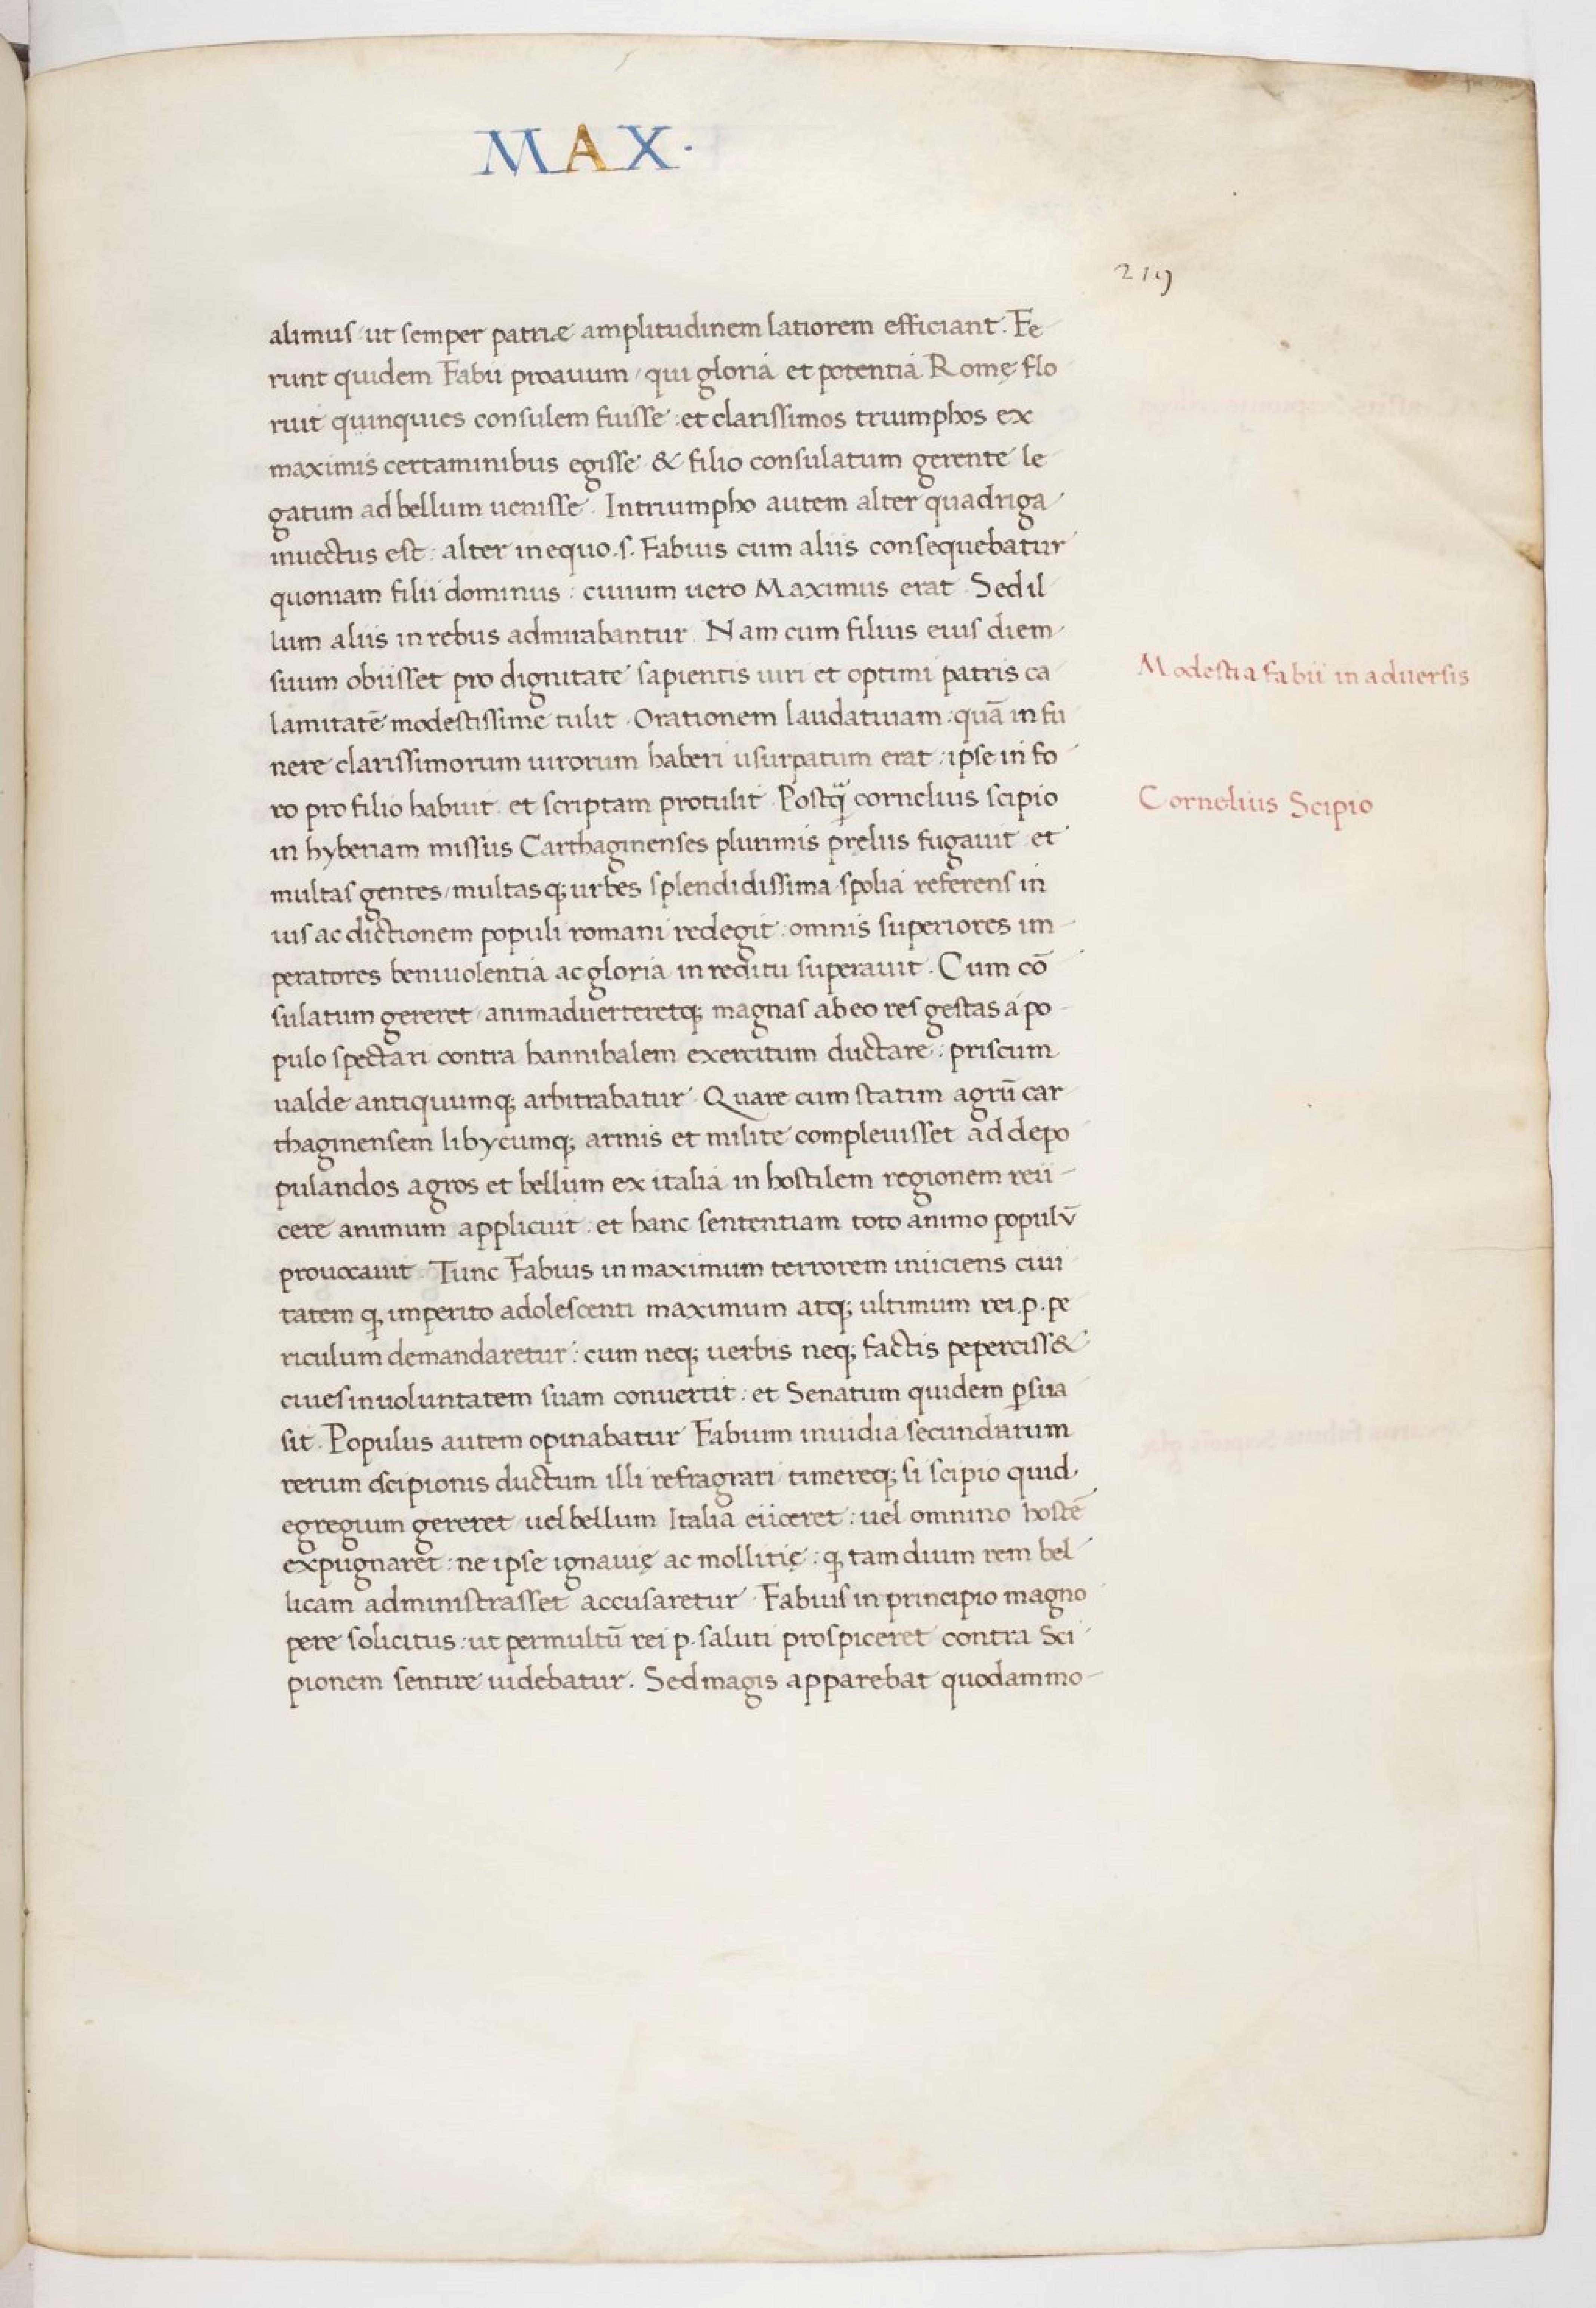 MAX·
219
alimus ut semper patriæ amplitudinem latiorem efficiant. Fe
runt quidem Fabii proauum / qui gloria et potentia Romę flo
ruit quinquies consulem fuisse : et clarissimos triumphos ex
maximis certaminibus egisse & filio consulatum gerente le
gatum ad bellum uenisse. In triumpho autem alter quadriga
inuectus est : alter in equo .s. Fabius cum aliis consequebatur
quoniam filii dominus : ciuium uero Maximus erat. Sed il
lum aliis in rebus admirabantur. Nam cum filius eius diem
suum obiisset pro dignitate sapientis uiri et optimi patris ca
lamitatē modestissime tulit. Orationem laudatiuam : quā in fu
Modestia fabii in aduersis
nere clarissimorum uirorum haberi usurpatum erat : ipse in fo
ro pro filio habuit et scriptam protulit. Postq̃ cornelius scipio
Cornelius Scipio
in hyberiam missus Carthaginenses plurimis pręliis fugauit et
multas gentes / multasq; urbes splendidissima spolia referens in
ius ac dictionem populi romani redegit : omnis superiores im
peratores beniuolentia ac gloria in reditu superauit. Cum cō
sulatum gereret animaduerteretq; magnas ab eo res gestas a po
pulo spectari contra hannibalem exercitum ductare : priscum
ualde antiquumq; arbitrabatur. Quare cum statim agrū car
thaginensem libycumq; armis et milite compleuisset ad depo
pulandos agros et bellum ex italia in hostilem regionem reii
cere animum applicuit : et hanc sententiam toto animo populū
prouocauit. Tunc Fabius in maximum terrorem iniiciens ciui
tatem ꝙ imperito adolescenti maximum atq; ultimum rei .p. pe
riculum demandaretur : cum neq; uerbis neq; factis peperciss&
ciues in uoluntatem suam conuertit : et Senatum quidem ꝑsua
sit. Populus autem opinabatur Fabium inuidia secundarum
rerum scipionis ductum illi refragrari timereq; si scipio quid
egregium gereret uel bellum Italia eiiceret : uel omnino hostē
expugnaret : ne ipse ignauię ac mollitię : ꝙ tam diuum rem bel
licam administrasset accusaretur. Fabius in principio magno
pere solicitus : ut permultū rei p. saluti prospiceret contra Sci
pionem sentire uidebatur. Sed magis apparebat quodammo